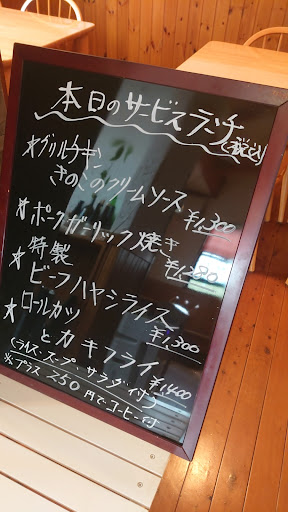 本日のサービスランチ(税込)
★グリルチキン
きのこのクリームソース ¥1,300
★ポークガーリック焼き
¥1,280
特製
★ビーフハヤシライス
¥1,300
★ロールカツ
とカキフライ
¥1,400
(ライス・スープ・サラダ付)
※プラス250円でコーヒー付